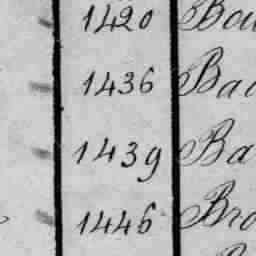 1420 Bou
1436 Bad
1439 Ba
1446 Bro